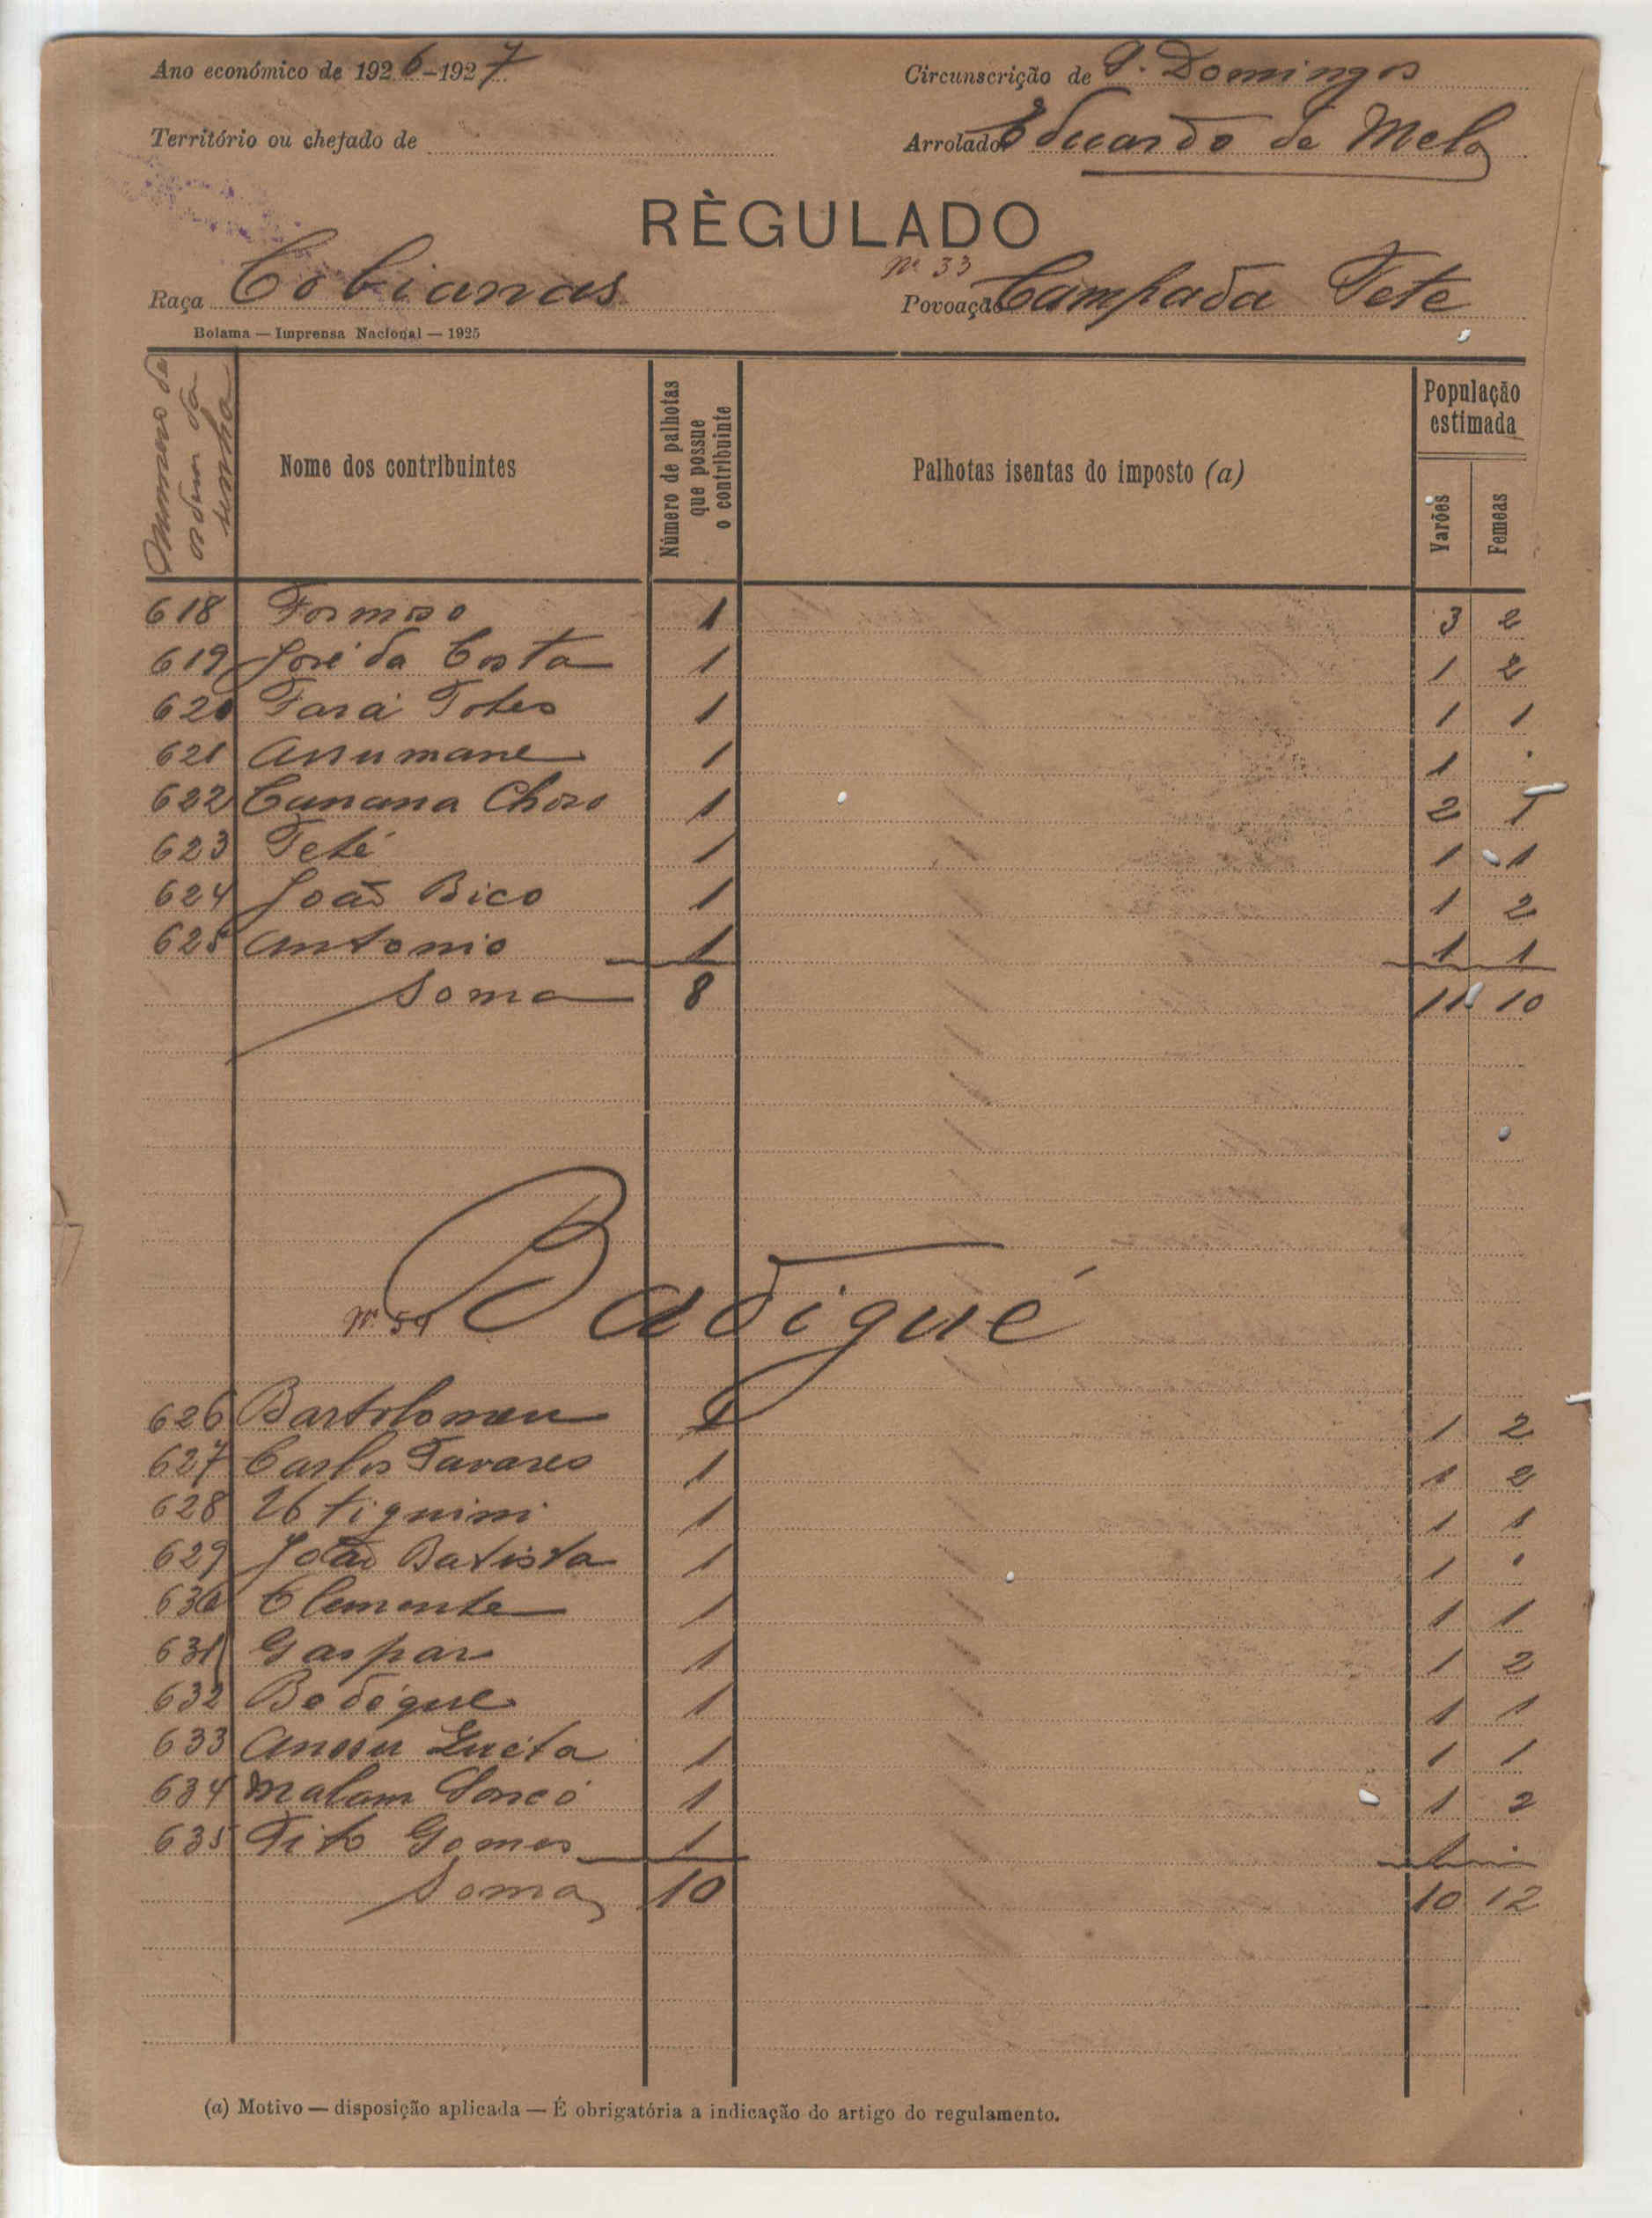 Ano económico de 1926-1927
Circunscrição de S. Domingos
Território ou chefado de
Arrolador Eduardo de Melo
RÈGULADO
Raça Cobianas
Nº 33
Povoação Campada Tete
Bolama — Imprensa Nacional — 1925
Numeros de
ordem da
senha
Nome dos contribuintes
Número de palhotas
que possue
o contribuinte
Palhotas isentas do imposto (a)
População
estimada
Varões
Femeas
618 Formoso 1 3 2
619 José da Costa 1 1 2
620 Fará 1 1 1
621 Assumane 1 1 .
622 Cunana 1 2 1
623 Teté 1 1 1
624 João Bico 1 1 2
625 Antonio 1 1 1
Soma 8 11 10
Nº Badigué
626 Bartolomeu 1 1 2
627 Carlos Tavares 1 1 2
628 1 1 1
629 João Batista 1 1 .
630 Clemente 1 1 1
631 Gaspar 1 1 2
632 Bedégue 1 1 1
633 1 1 1
634 Malam Sonco 1 1 2
635 Tito Gomes 1 1 .
Soma 10 10 12
(a) Motivo — disposição aplicada — É obrigatória a indicação do artigo do regulamento.